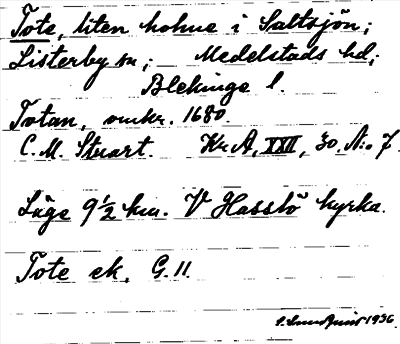 Tote, liten holme i Saltsjön;
Listerby sn; Medelstads hd;
Blekinge l.
Totan, omkr. 1680.
C. M. Stuart. Kr. A, XXII, 30, N:o 7.
Läge 9 1/2 km. V Hasslö kyrka.
Tote ek. G. 11.
1936